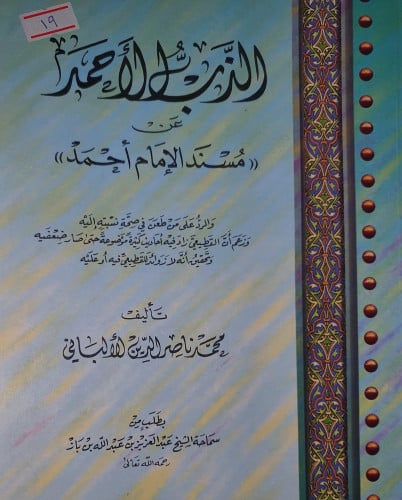 ١٩
الذَّبُّ الأَحْمَدُ
عَنْ
«مُسْنَدِ الإِمَامِ أَحْمَدَ»
وَالرَّدُّ عَلَى مَنْ طَعَنَ فِي صِحَّةِ نِسْبَتِهِ إِلَيْهِ
وَزَعَمَ أَنَّ القَطِيعِيَّ زَادَ فِيهِ أَحَادِيثَ كَثِيرَةً مَوْضُوعَةً حَتَّى صَارَ ضِعْفَيْهِ
وَتَحْقِيقُ أَنَّهُ لَا زَوَائِدَ لِلْقَطِيعِيِّ فِيهِ أَوْ عَلَيْهِ
تَأليف
محمد ناصر الدين الألباني
بِطَلَبٍ مِنْ
سماحة الشيخ عبد العزيز بن عبد الله بن باز
رحمه الله تعالى